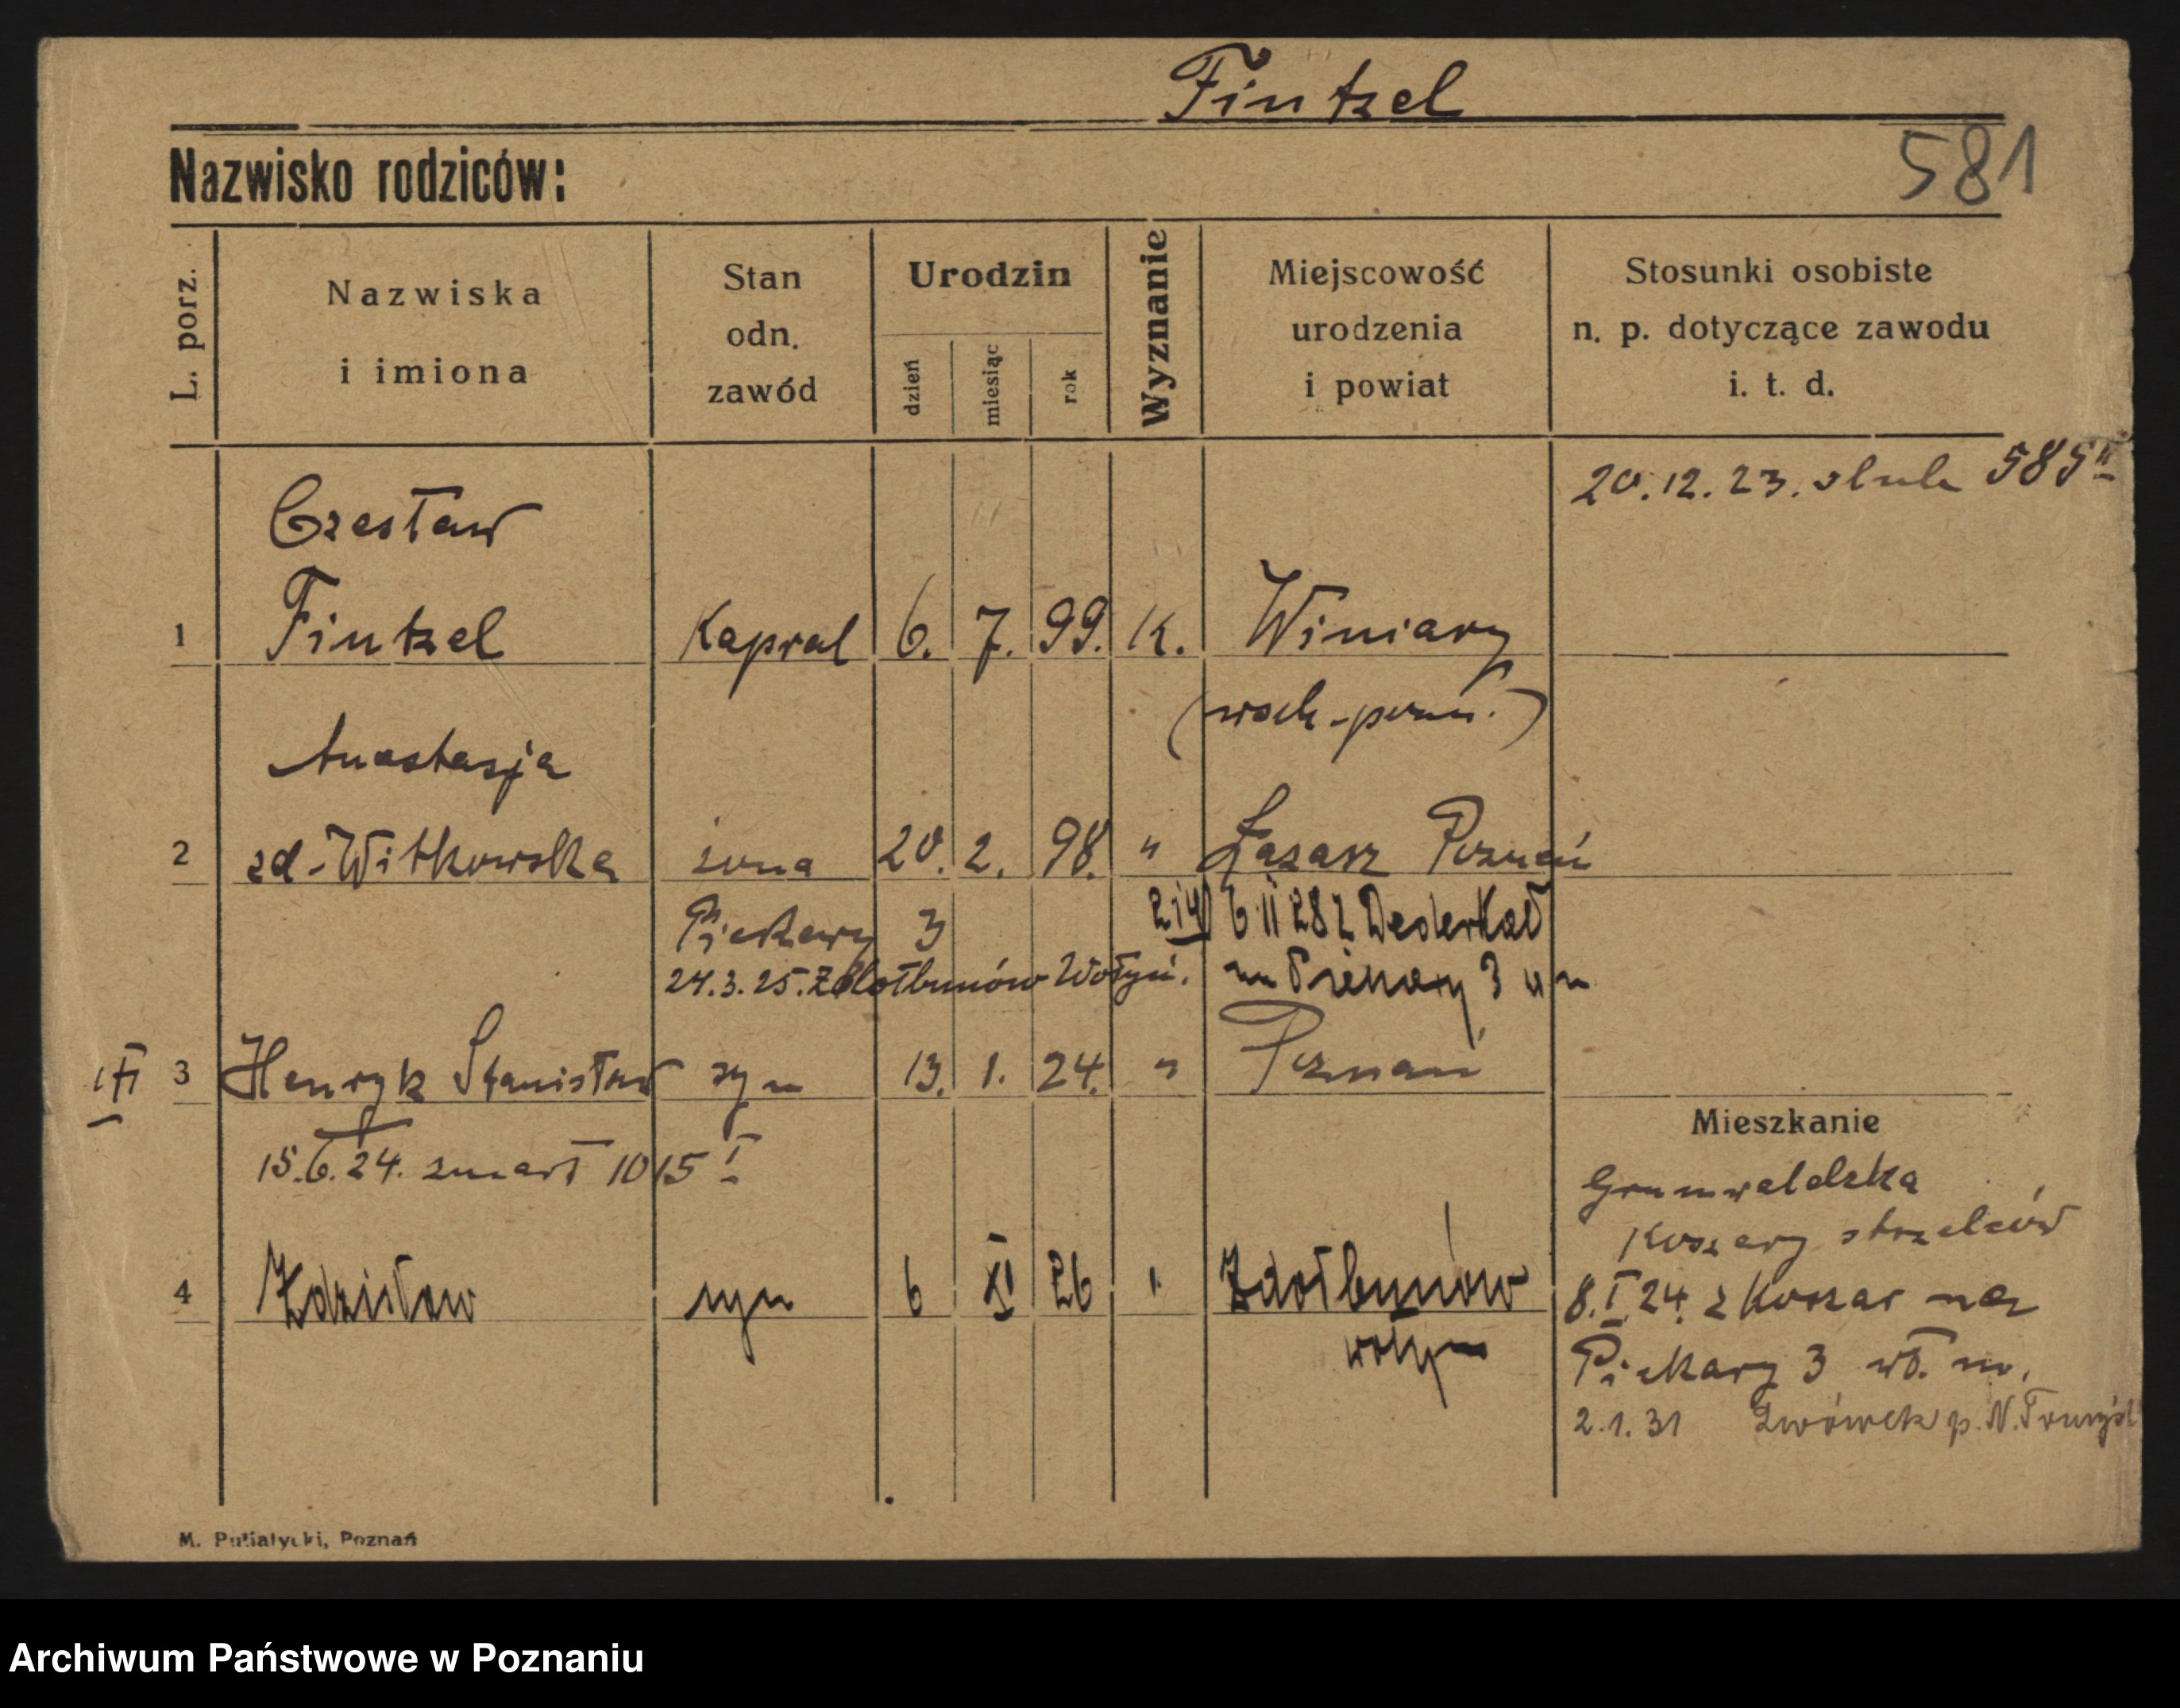 Fintzel
581
Nazwisko rodziców:
L. porz.
Nazwiska
i imiona
Stan
odn.
zawód
Urodzin
dzień
miesiąc
rok
Wyznanie
Miejscowość
urodzenia
i powiat
Stosunki osobiste
n. p. dotyczące zawodu
i. t. d.
20.12.23. 585 II
Czesław
1 Fintzel Kapral 6. 7. 99. K. Winiary
(wsch-pozn.)
Anastazja
2 zd-Witkowska żona 20. 2. 98. " Łazarz Poznań
Piekary 3
2 i 4) 6 II 28 z Dederkał
24.3.25. Zdołbunów Wołyń.
na Piekary 3
3 Henryk Stanisław syn 13. 1. 24. " Poznań
15.6.24. zmarł 1015 I
Mieszkanie
Grunwaldzka
Koszary strzelców
4 Zdzisław syn 6 XI 26 " Zdołbunów
Wołyń
8.I.24. z Koszar na
Piekary 3 wł. m.
2.1.31 Lwówek p. N.Tomyśl
M. Putiatycki, Poznań
Archiwum Państwowe w Poznaniu